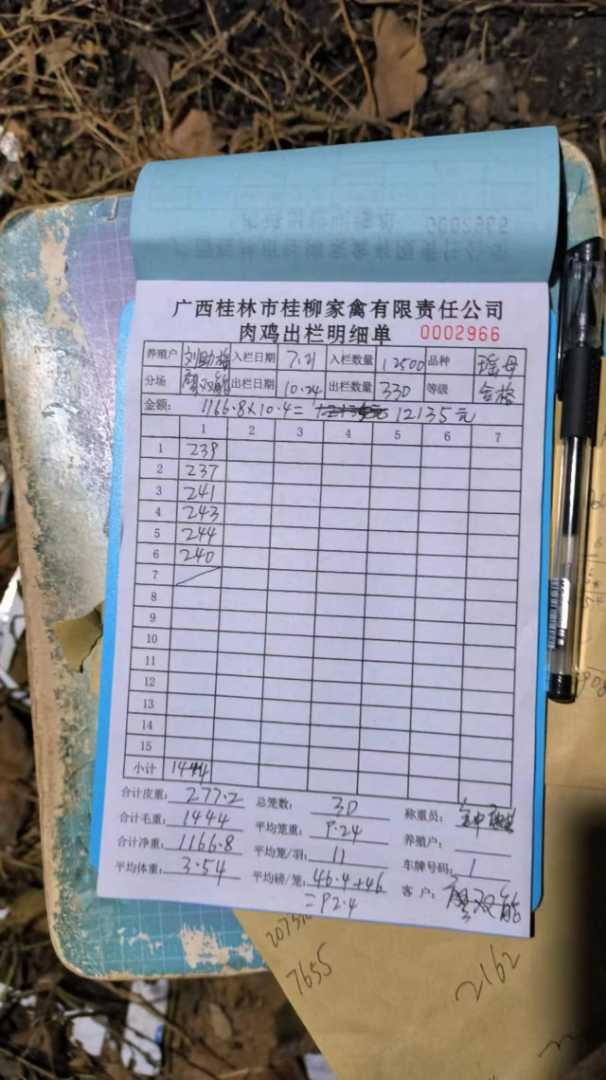 广西桂林市桂柳家禽有限责任公司
肉鸡出栏明细单 0002966
养殖户 入栏日期 7.21 入栏数量 12500 品种 瑶母
分场 廖双能 出栏日期 10.24 出栏数量 330 等级 合格
金额： 1166.8×10.4= 12135元
1 2 3 4 5 6 7
1 239
2 237
3 241
4 243
5 244
6 240
7
8
9
10
11
12
13
14
15
小计 1444
合计皮重： 277.2 总笼数： 30 称重员：
合计毛重： 1444 平均笼重： 9.24 养殖户：
合计净重： 1166.8 平均笼/羽： 11 车牌号码： 1
平均体重： 3.54 平均磅/笼： 46.4+46 客户： 廖双能
=92.4
7655
2162